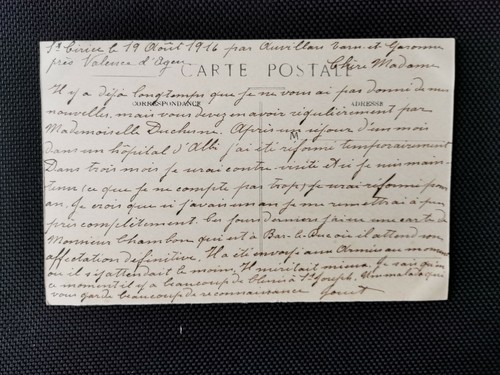 St Cirice le 19 Août 1916 par Auvillar Tarn-et-Garonne
près Valence d'Agen
CARTE POSTALE
Chère Madame
Il y a déjà longtemps que je ne vous ai pas donné de mes
CORRESPONDANCE
ADRESSE
nouvelles, mais vous devez en avoir régulièrement par
M
Mademoiselle Duchesne. Après un séjour d'un mois
dans un hôpital d'Albi j'ai été réformé temporairement
Dans trois mois je serai contre-visité et si je suis main-
tenu (ce que je ne compte pas trop) je serai réformé pour un
an. Je crois que si j'avais un an je me remettrai à peu
près complètement. Ces jours derniers j'ai eu une carte de
Monsieur Chambon qui est à Bar-le-Duc où il attend son
affectation définitive. Il a été envoyé aux Armées au moment
où il s'attendait le moins. Il méritait mieux. Je sais qu'en
ce moment il y a beaucoup de blessés à St Joseph. Un malade qui
vous garde beaucoup de reconnaissance